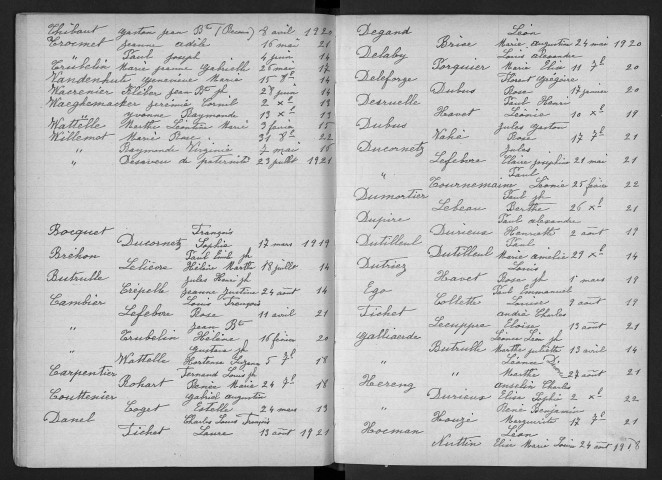 Thibaut Gaston Jean Bte (Reconn) 8 avril 1920
Trocmet Jeanne Adèle 16 mai 21
" Paul Joseph 4 juin 14
Marie Jeanne Gabrielle 26 mai 14
Vandenhute Geneviève Marie 15 7bre 14
Waerenier Kléber Jean Bte Jh 28 juin 14
Waeghemacker Jérémie Cornil 2 xbre 13
" Yvonne Raymonde 13 xbre 13
Wattelle Marthe Léontine Marie 2 février 15
Willemot Marie Rose 3 8bre 22
" Raymonde Virginie 2 mai 16
" Désaveu de paternité 23 juillet 1921
Bocquet François
Ducornetz Sophie 17 mars 1919
Bréhon Paul Emile Jh
Lelièvre Hélène Marthe 18 juillet 14
Butrulle Jules Henri Jh
Crépelle Jeanne Justine 24 août 14
Cambier Louis François
Lefebvre Rose 11 avril 21
" Jean Bte
Trubelin Hélène 16 février 20
" Gustave Jh
Wattelle Hortense 5 7bre 18
Carpentier Fernand Louis Jh
Rohart Renée Marie 24 7bre 18
Couttenier Gabriel Augustin
Coget Estelle 24 mars 13
Danel Charles Louis François
Tichet Laure 13 août 1921
Degand Léon
Brice Marie Augustine 24 mai 1920
Delaby Louis Alexandre
Forquier Marie 11 7bre 20
Deleforge Florent Grégoire
Dubus Rose 17 janvier 20
Desruelle Paul Henri
Havet Léonie 10 xbre 19
Dubus Jules Gaston
Vahé Rose 17 7bre 21
Ducornetz Jules
Lefebvre Claire Joséphine 21 mai 21
" Paul
Tournemain Léonie 25 février 22
Dumortier Paul Jh
Lebeau Berthe 26 xbre 21
Dupire Paul Alexandre
Durieux Henriette 2 août 19
Dutilleul Paul
Dutilleul Marie Amélie 29 xbre 14
Dutriez Louis
Havet Rose Jh 1er mars 19
Ego Paul Emmanuel
Collette Louise 9 août 19
Fichet André Charles
Lecuppre Eloïse 13 août 21
Galliaerde Léonce Léon Jh
Butrulle Marthe Juliette 13 avril 14
" Léonce
" Marthe 27 août 21
Hereng Anselin Charles
Durieux Elise Sophie 2 xbre 22
" René Benjamin
Houzé Marguerite 17 7bre 21
Hocman Léon
Nuttin Elise Marie Louise 24 août 1918